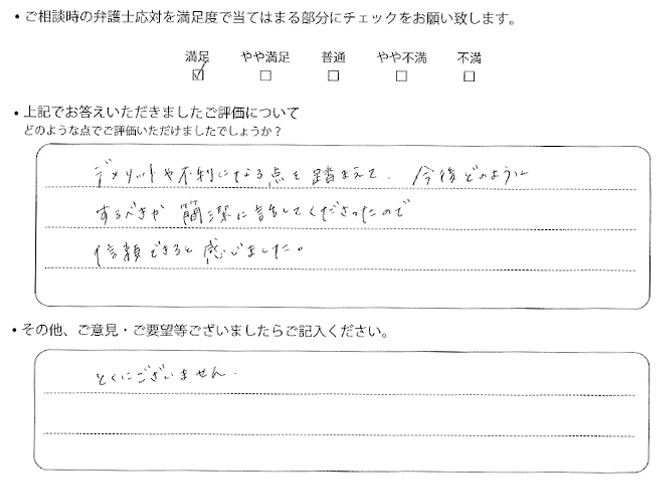 ・ご相談時の弁護士応対を満足度で当てはまる部分にチェックをお願い致します。
満足 やや満足 普通 やや不満 不満
☑ □ □ □ □
・上記でお答えいただきましたご評価について
どのような点でご評価いただけましたでしょうか？
デメリットや不利になる点を踏まえて、今後どのように
するべきか 簡潔に話をしてくださったので
信頼できると感じました。
・その他、ご意見・ご要望等ございましたらご記入ください。
とくにございません.